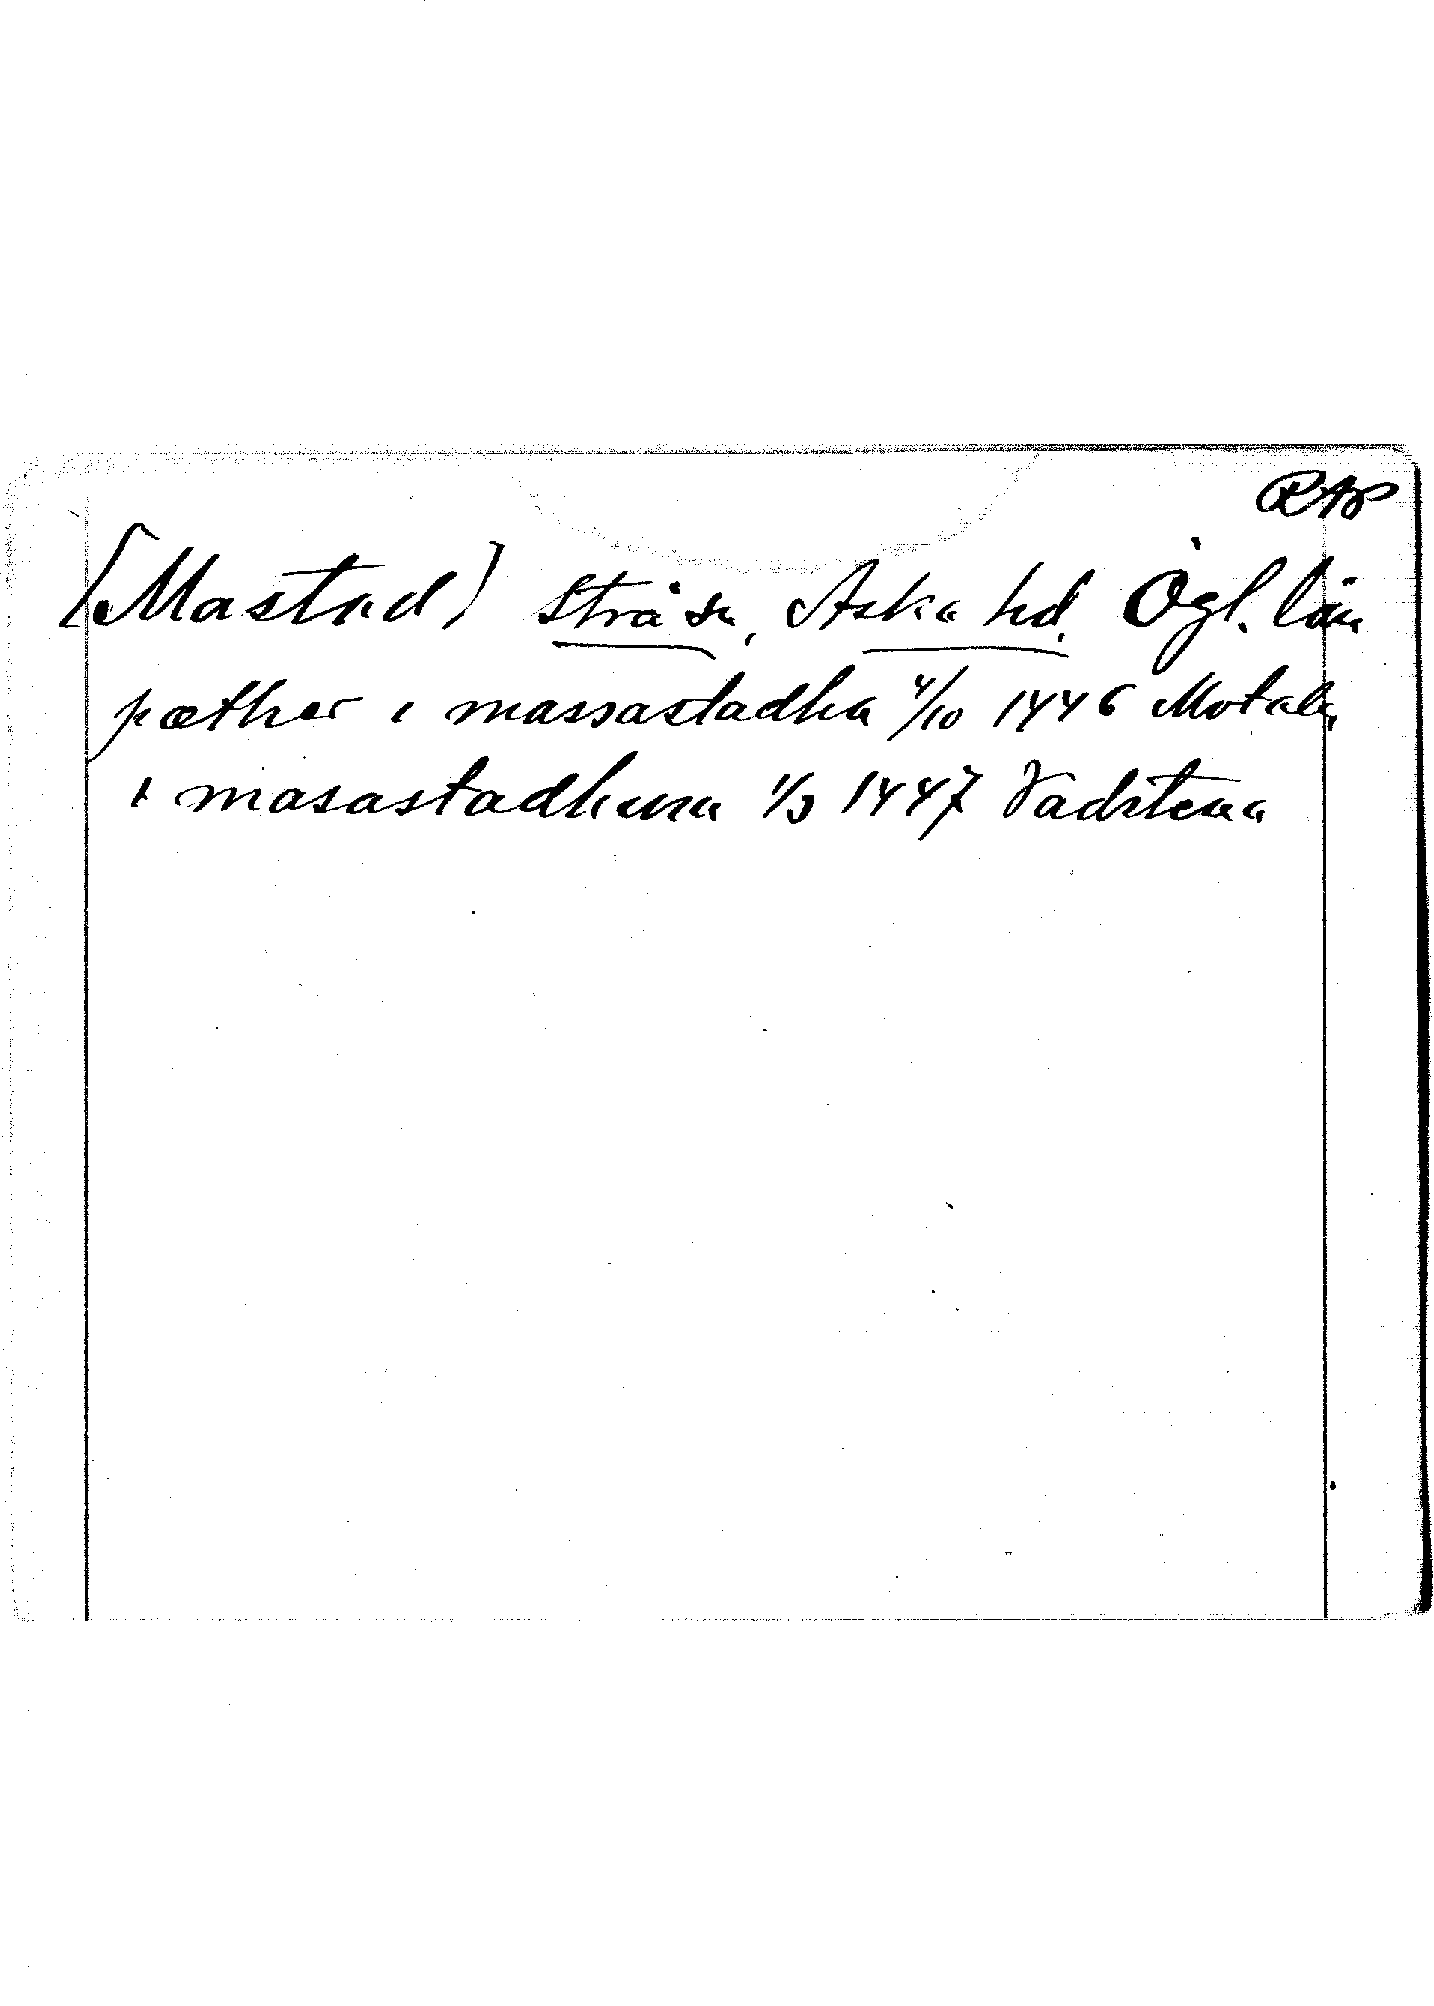 RAP
[Mastad] Strå sn, Aska hd. Ögl. län
pæther i massastadha 4/10 1446 Motala
i masastadhum 1/3 1447 Vadstena